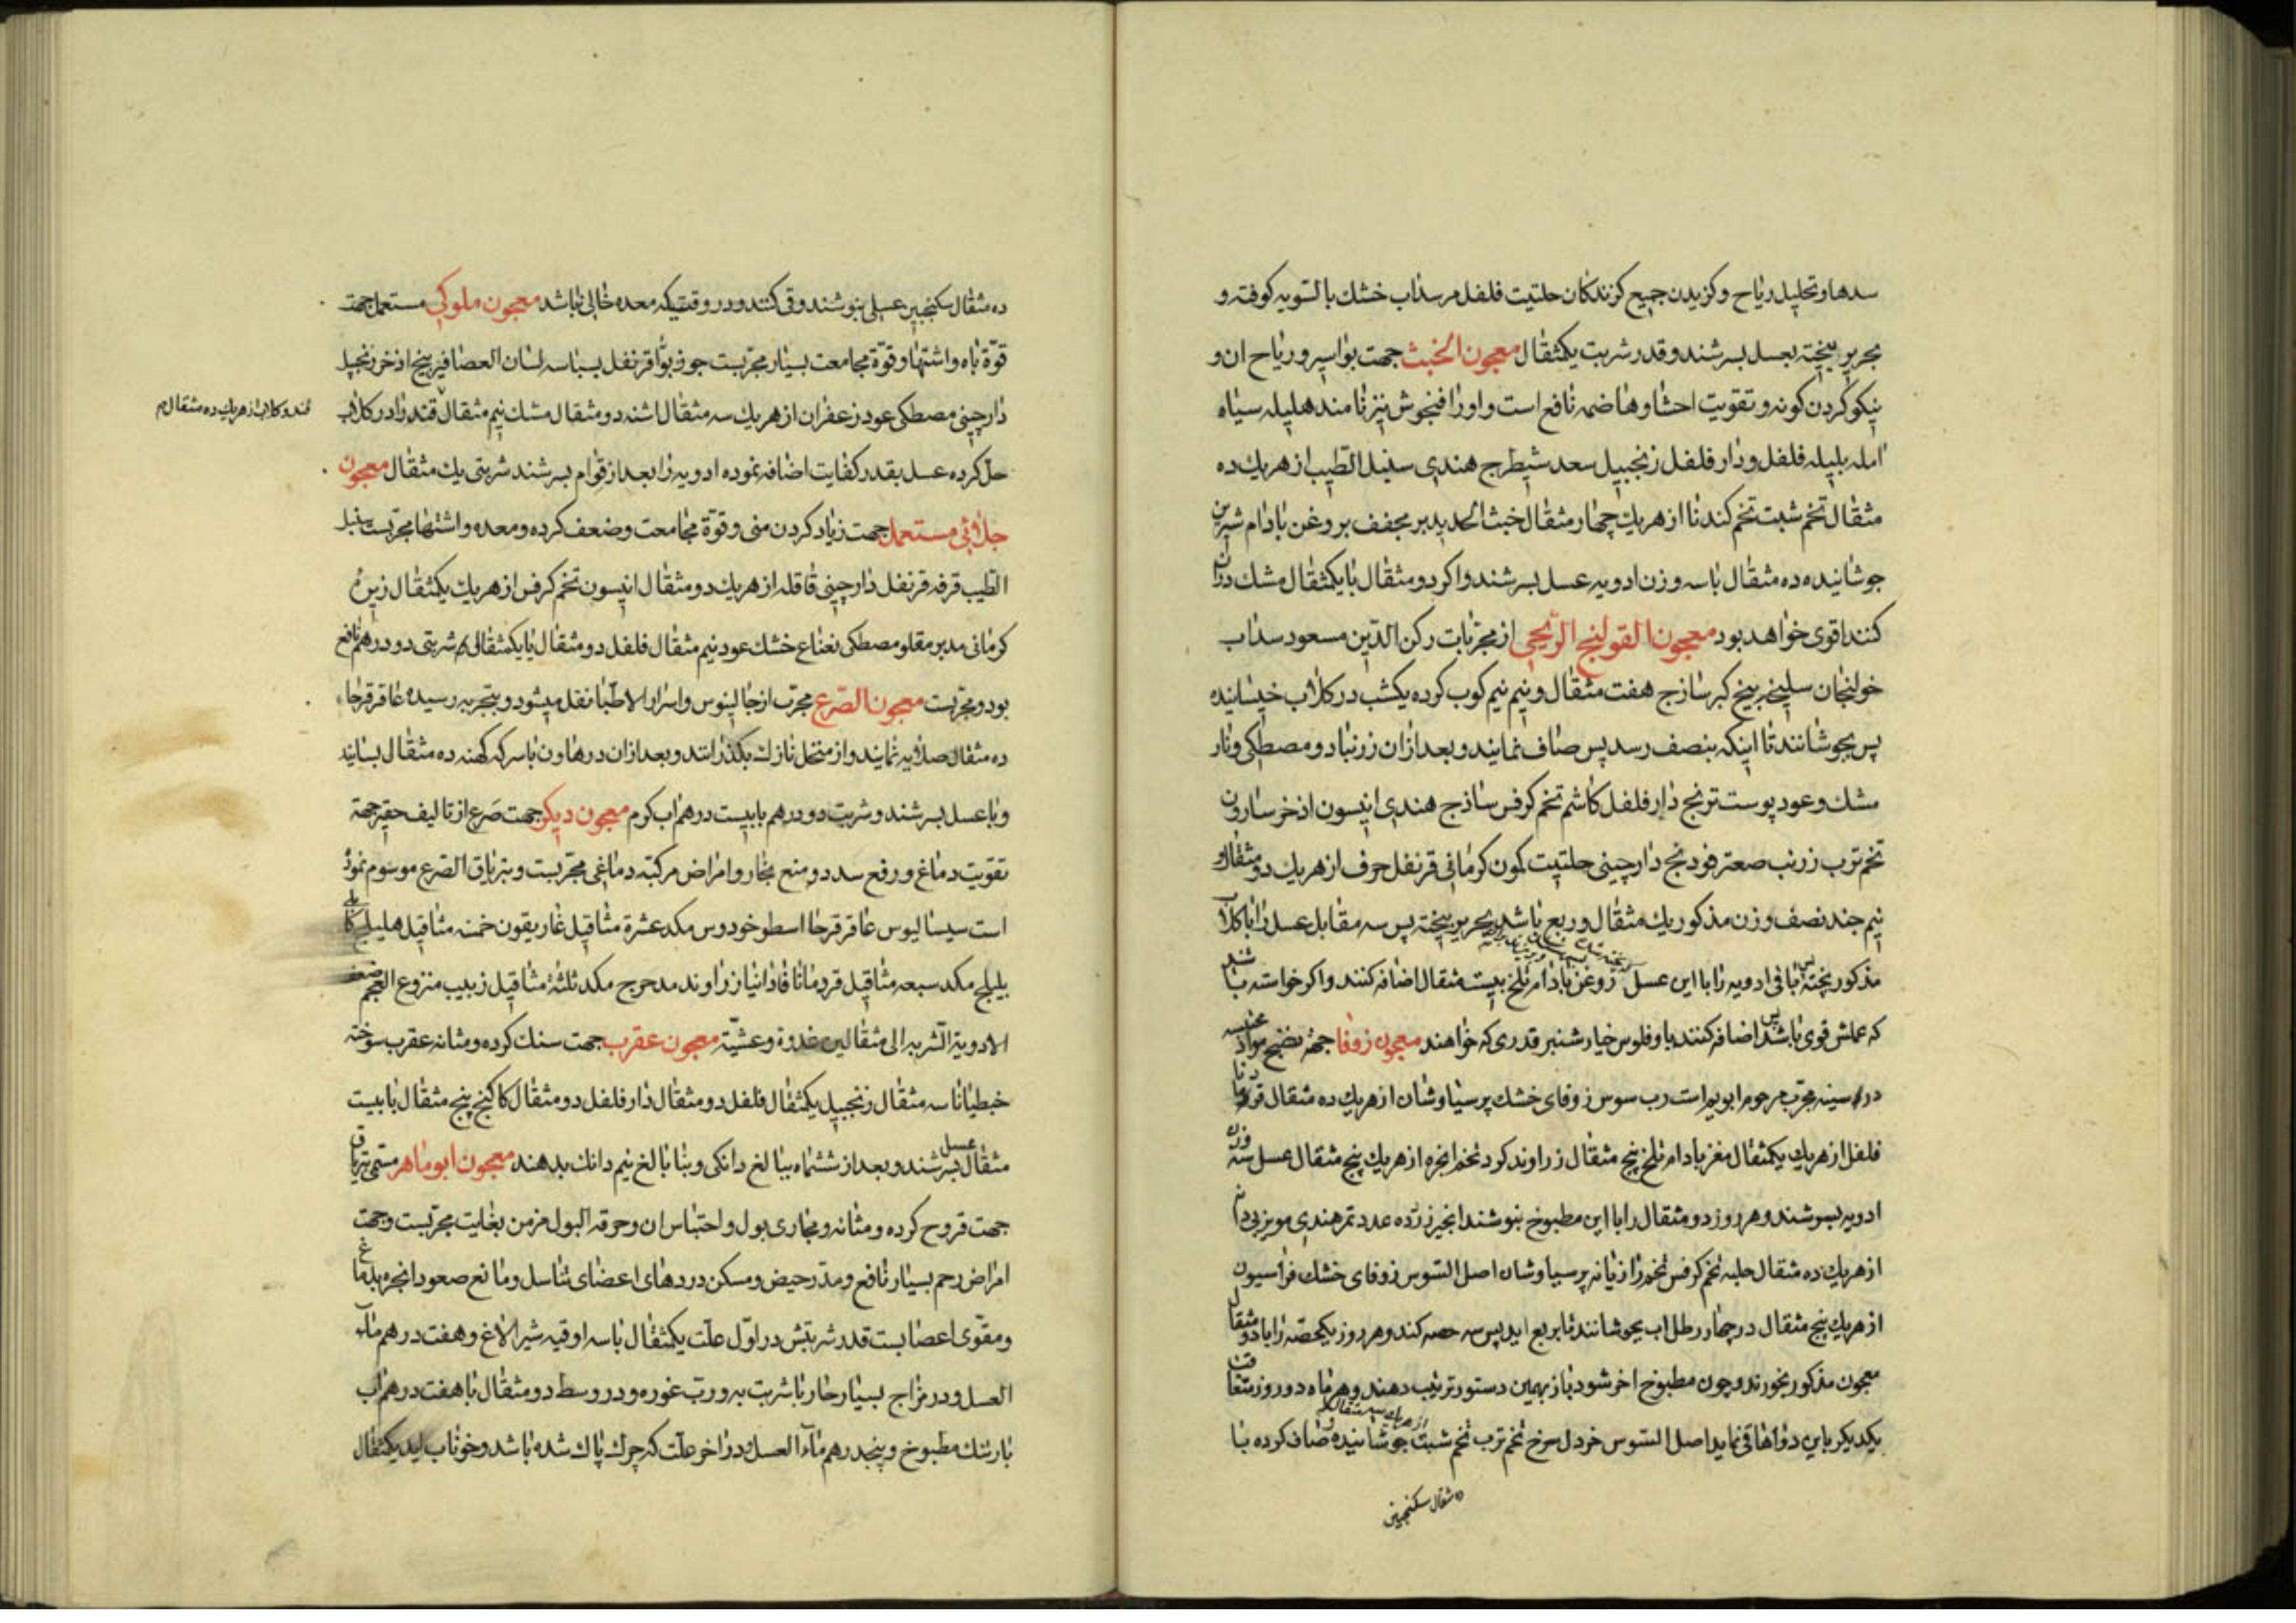 سدها و تحلیل ریاح و کزیدن جمیع کزندکان حلتیت فلفل مر سداب خشك بالسویه کوفته و
بحریر بیخته بعسل بسرشند و قدر شربت یکمثقال معجون الخبث جهت بواسیر و ریاح ان و
نیکو کردن کونه و تقویت احشا و هاضمه نافع است و اورا فنجوش نیز نامند هلیله سیاه
امله بلیله فلفل و دار فلفل زنجبیل سعد شیطرج هندی سنبل الطیب از هریك ده
مثقال تخم شبت تخم کندنا از هریك چهار مثقال خبث الحدید مدبر مجفف بروغن بادام شیرین
جوشانیده ده مثقال با سه وزن ادویه عسل بسرشند و اکر دو مثقال با یکمثقال مشك دران
کنند اقوی خواهد بود معجون القولنج الریحی از مجربات رکن الدین مسعود سداب
خولنجان سلیخه بیخ کبر ساذج هفت مثقال و نیم نیم کوب کرده یکشب در کلاب خیسانیده
پس بجوشانند تا اینکه بنصف رسد پس صاف نمایند و بعد ازان زرنباد و مصطکی و نار
مشك و عود پوست ترنج دار فلفل کاشم تخم کرفس ساذج هندی انیسون اذخر سارون
تخم ترب زرنب صعتر فودنج دارچینی حلتیت کمون کرمانی قرنفل حرف از هریك دو مثقال و
نیم جند نصف وزن مذکور یك مثقال و ربع باشد بحریر بیخته پس سه مقابل عسل را با کلاب
مذکور پخته پس باقی ادویه را با این عسل روغن بادام تلخ بیست مثقال اضافه کنند و اکر خواسته باشند
که عملش قوی باشد پس اضافه کنند با و فلوس خیارشنبر قدری که خواهند معجون زوفا جهته نضج مواد
در سینه مجرب مرحوم ابویم است رب سوس زوفای خشك پرسیاوشان از هریك ده مثقال قردمانا
فلفل از هریك یکمثقال مغز بادام تلخ پنج مثقال زراوند کرد تخم انجره از هریك پنج مثقال عسل سه وزن
ادویه بسرشند و هر روز دو مثقال را با این مطبوخ بنوشند انجیر زرد ده عدد تمر هندی مویز بی دانه
از هریك ده مثقال حلبه تخم کرفس تخم رازیانه پرسیاوشان اصل السوس زوفای خشك فراسیون
از هریك پنج مثقال در چهار رطل اب بجوشانند تا بربع اید پس سه حصه کند و هر روز یکحصه را با دو مثقال
معجون مذکور بخورند و چون مطبوخ اخر شود باز بهمین دستور ترتیب دهند و هر ماه دو روز متعاقب
یکدیکر باین دواها قی نماید اصل السوس خردل سرخ تخم ترب تخم شبت از هریك سه مثقال جوشانیده و صاف کرده با
ده مثقال سکنجبین
ده مثقال سکنجبین عسلی بنوشند و قی کنند و در وقتیکه معده خالی نباشد معجون ملوکی مستعمل جهت
قوة باه و اشتها و قوة مجامعت بسیار مجربست جوز بوا قرنفل بسباسه لسان العصافیر بیخ اذخر زنجبیل
دارچینی مصطکی عود زعفران از هریك سه مثقال اشنه دو مثقال مشك نیم مثقال قند را در کلاب
قند و کلاب از هریك ده مثقال م
حل کرده عسل بقدر کفایت اضافه نموده ادویه را بعد از قوام بسرشند شربتی یك مثقال معجون
جلالی مستعمل جهت زیاد کردن منی و قوة مجامعت و ضعف کرده و معده و اشتها مجربست سنبل
الطیب قرفه قرنفل دارچینی قاقله از هریك دو مثقال انیسون تخم کرفس از هریك یکمثقال زیره
کرمانی مدبر مقلو مصطکی نعناع خشك عود نیم مثقال فلفل دو مثقال یا یکمثقال شربتی دو درهم نافع
بود و مجربست معجون الصرع مجرب از جالینوس و اسرار الاطبا نقل میشود و بتجربه رسیده عاقرقرحا
ده مثقال صلایه نمایند و از منخل نازك بکذرانند و بعد ازان در هاون با سرکه کهنه ده مثقال بسایند
و با عسل بسرشند و شربت دو درهم با بیست درهم اب کرم معجون دیکر جهت صرع از تالیف حقیر جهة
تقویت دماغ و رفع سدد و منع بخار و امراض مرکبه دماغی مجربست و بتریاق الصرع موسوم نموده
است سیسالیوس عاقرقرحا اسطوخودوس مکد عشرة مثاقیل غاریقون خمسه مثاقیل هلیلج کابلی
بلیلج مکد سبعه مثاقیل قردمانا قادانیا زراوند مدحرج مکد ثلثة مثاقیل زبیب منزوع العجم ضعف
الادویة الشربه الی مثقالین غدوة و عشیة معجون عقرب جهت سنك کرده و مثانه عقرب سوخته
خبطیانا سه مثقال زنجبیل یکمثقال فلفل دو مثقال دار فلفل دو مثقال کاکنج پنج مثقال با بیست
مثقال عسل بسرشند و بعد از ششماه ببالغ دانکی و بنابالغ نیم دانك بدهند معجون ابوماهر مسمی بتریاق
جهت قروح کرده و مثانه و مجاری بول و احتباس ان و حرقه البول مزمن بغایت مجربست و جهت
امراض رحم بسیار نافع و مدر حیض و مسکن دردهای اعضای تناسل و مانع صعود ابخره بدماغ
و مقوی اعضابست قدر شربتش در اول علت یکمثقال با سه اوقیه شیر الاغ و هفت درهم ماء
العسل و در مزاج بسیار حار با شربت به و رب غوره و در وسط دو مثقال با هفت درهم اب
بارتنك مطبوخ و پنجدرهم ماء العسل و در اخر علت که چرك پاك شده باشد و خوناب اید یکمثقال